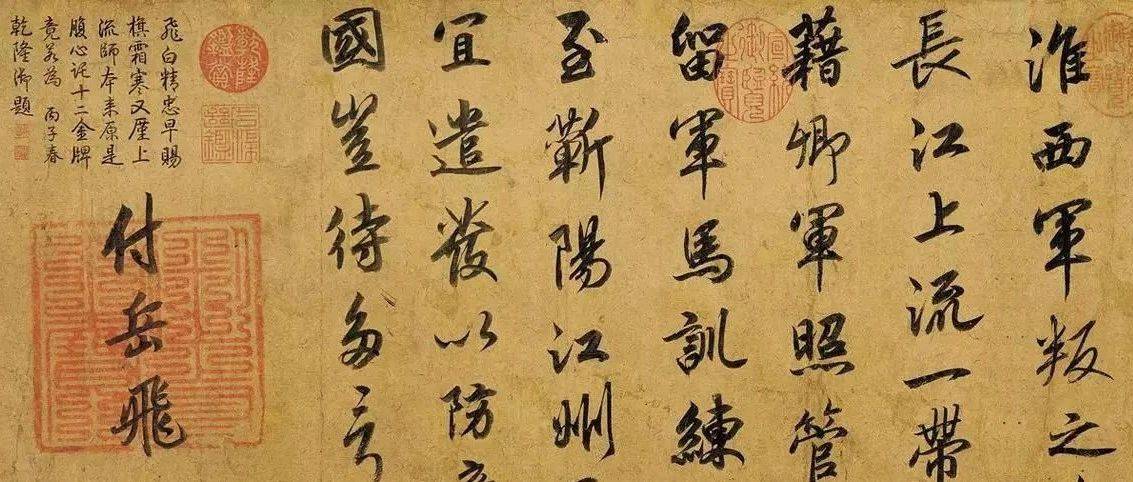 淮西軍叛之
長江上流一帶
藉卿軍照管
留軍馬訓練
至蘄陽江州
宜遣發以防
國豈待多言
付岳飛
飛白精忠早賜
旗霜寒又歷上
流師本来原是
腹心託十二金牌
竟若為 丙子春
乾隆御題